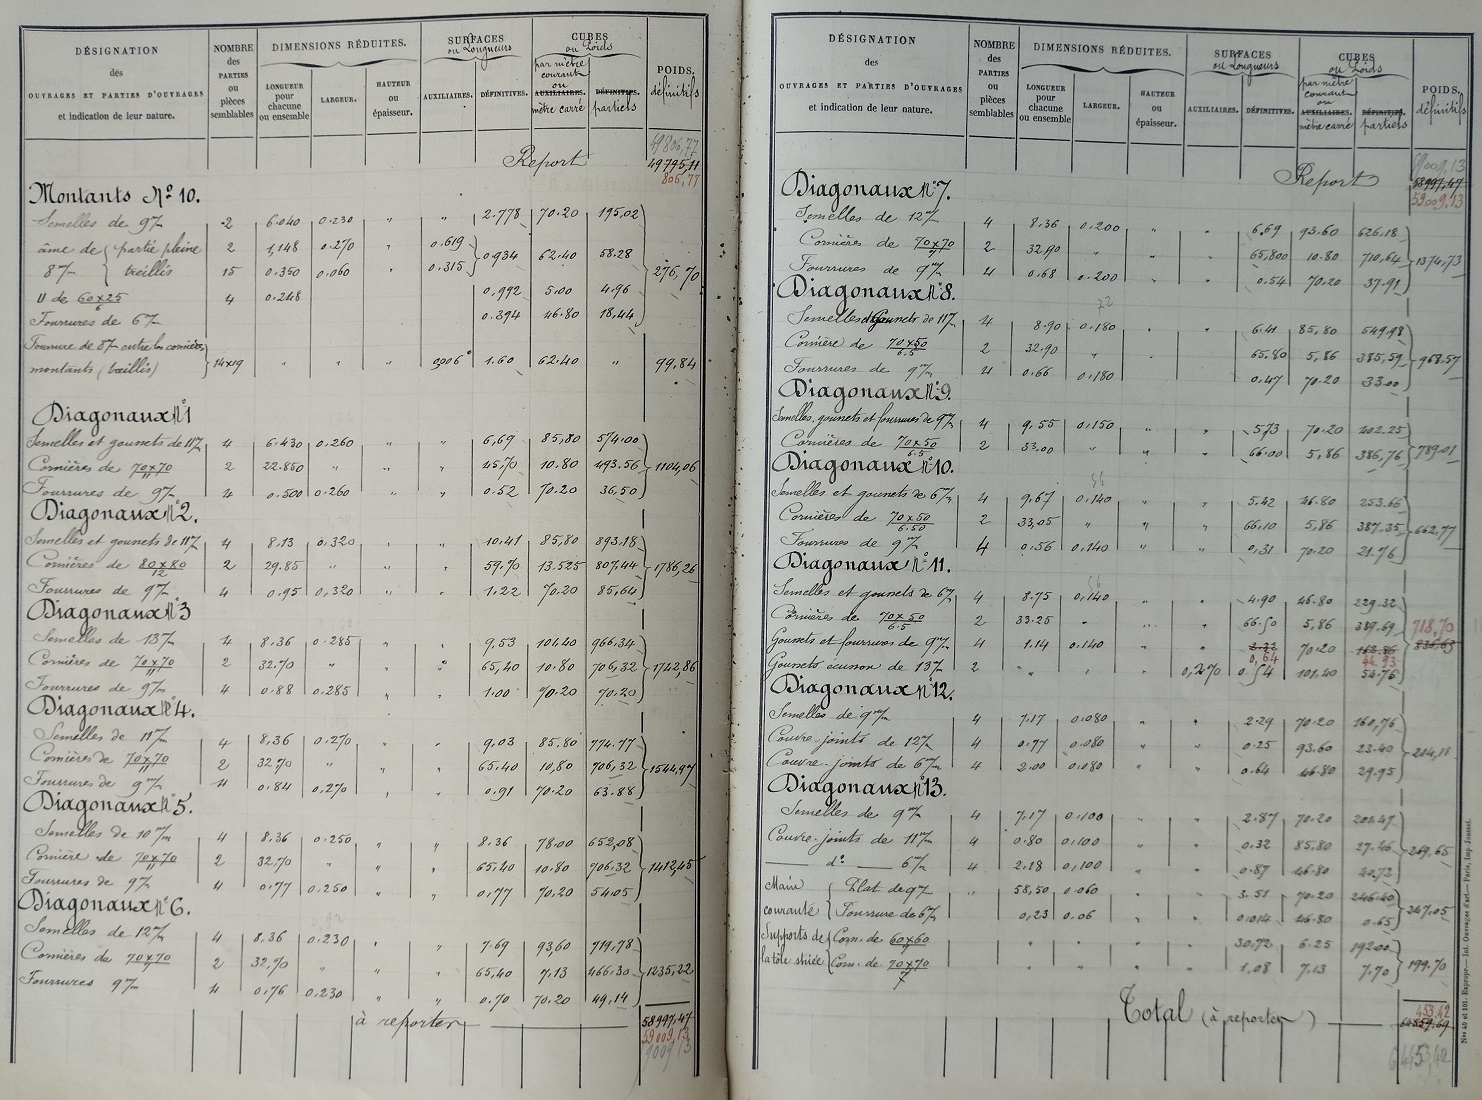 DÉSIGNATION
des
OUVRAGES ET PARTIES D'OUVRAGES
et indication de leur nature.
NOMBRE
des
PARTIES
ou
pièces
semblables
DIMENSIONS RÉDUITES.
LONGUEUR
pour
chacune
ou ensemble
LARGEUR.
HAUTEUR
ou
épaisseur.
SURFACES
ou Longueurs
AUXILIAIRES.
DÉFINITIVES.
CUBES
ou Poids
par mètre
courant
ou
AUXILIAIRES.
mètre carré
DÉFINITIFS.
partiels
POIDS.
définitifs
49806,77
Report 49795,11
806,77
Montants No 10.
Semelles de 9m/m 2 6.040 0.230 " " 2.778 70.20 195,02
âme de partie pleine 2 1,148 0.270 " 0.619
8m/m treillis 15 0.350 0.060 " 0.315 0.934 62.40 58.28 276,70
U de 60x25/6 4 0.248 0.992 5.00 4.96
Fourrures de 6m/m 0.394 46.80 18,44
Fourrure de 8m/m entre les cornières
montants (treillis) 14x19 " " " 0,006 1.60 62.40 " 99,84
Diagonaux No 1
Semelles et goussets de 11m/m 4 6.430 0.260 " " 6,69 85,80 574.00
Cornières de 70x70/11 2 22.850 " " " 45.70 10.80 493.56 1104,06
Fourrures de 9m/m 4 0.500 0.260 " " 0.52 70.20 36,50
Diagonaux No 2.
Semelles et goussets de 11m/m 4 8.13 0.320 " " 10.41 85,80 893.18
Cornières de 80x80/12 2 29.85 " " " 59.70 13.525 807,44 1786,26
Fourrures de 9m/m 4 0.95 0,320 " " 1.22 70.20 85,64
Diagonaux No 3
Semelles de 13m/m 4 8.36 0.285 " " 9,53 101.40 966.34
Cornières de 70x70/11 2 32.70 " " " 65,40 10.80 706,32 1742,86
Fourrures de 9m/m 4 0.88 0,285 " " 1.00 70.20 70.20
Diagonaux No 4.
Semelles de 11m/m 4 8,36 0.270 " " 9,03 85.80 774.77
Cornières de 70x70/11 2 32.70 " " " 65.40 10,80 706,32 1544,97
Fourrures de 9m/m 4 0.84 0,270 " " 0.91 70.20 63.88
Diagonaux No 5.
Semelles de 10m/m 4 8,36 0.250 " " 8.36 78.00 652,08
Cornière de 70x70/11 2 32,70 " " " 65.40 10.80 706.32 1412,45
Fourrures de 9m/m 4 0.77 0,250 " " 0,77 70.20 54.05
Diagonaux No 6.
Semelles de 12m/m 4 8,36 0.230 " " 7.69 93,60 719,78
Cornières de 70x70/11 2 32,70 " " " 65,40 7.13 466.30 1235,22
Fourrures 9m/m 4 0.76 0.230 " " 0.70 70.20 49,14
à reporter 58997,47
59009,13
9009 13
DÉSIGNATION
des
OUVRAGES ET PARTIES D'OUVRAGES
et indication de leur nature.
NOMBRE
des
PARTIES
ou
pièces
semblables
DIMENSIONS RÉDUITES.
LONGUEUR
pour
chacune
ou ensemble
LARGEUR.
HAUTEUR
ou
épaisseur.
SURFACES
ou Longueurs
AUXILIAIRES.
DÉFINITIVES.
CUBES
ou Poids
par mètre
courant
ou
AUXILIAIRES.
mètre carré
DÉFINITIFS.
partiels
POIDS.
définitifs
59009,13
Report 58997,47
59009.13
Diagonaux No 7.
Semelles de 12m/m 4 8.36 0.200 " " 6.69 93.60 626.18
Cornières de 70x70/11 2 32.90 " " " 65,800 10.80 710,64 1374,73
Fourrures de 9m/m 4 0.68 0.200 " " 0.54 70.20 37.91
Diagonaux No 8.
72
Semelles et Goussets de 11m/m 4 8.90 0.180 " " 6.41 85,80 549.98
Cornière de 70x50/6.5 2 32.90 " " " 65.80 5,86 385,59 968.57
Fourrures de 9m/m 4 0.66 0,180 " " 0.47 70.20 33.00
Diagonaux No 9.
Semelles, goussets et fourrures de 9m/m 4 9.55 0.150 " " 5.73 70.20 402.25
Cornières de 70x50/6.5 2 33.00 " " " 66.00 5,86 386,76 789.01
Diagonaux No 10.
56
Semelles et goussets de 6m/m 4 9.67 0.140 " " 5.42 46.80 253.66
Cornières de 70x50/6.50 2 33,05 " " " 66.10 5,86 387.35 662,77
Fourrures de 9m/m 4 0.56 0.140 " " 0.31 70.20 21.76
Diagonaux No 11.
56
Semelles et goussets de 6m/m 4 8.75 0,140 " " 4.90 46.80 229.32
Cornières de 70x50/6.5 2 33.25 " " " 66.50 5,86 389.69 718,70
Goussets et fourrures de 9m/m 4 1.14 0.140 " " 2.32 70.20 162.86 836.63
0,64 44.93
Goussets écusson de 13m/m 2 " " " 0,270 0.54 101.40 54.76
Diagonaux No 12.
Semelles de 9m/m 4 7.17 0.080 " " 2.29 70.20 160,76
Couvre-joints de 12m/m 4 0.77 0.080 " " 0.25 93.60 23.40 214,11
Couvre-joints de 6m/m 4 2.00 0.080 " " 0.64 46.80 29.95
Diagonaux No 13.
Semelles de 9m/m 4 7.17 0,100 " " 2.87 70.20 201.47
Couvre-joints de 11m/m 4 0.80 0,100 " " 0.32 85,80 27.46 269,65
— do — 6m/m 4 2.18 0,100 " " 0.87 46.80 40.72
Main Plat de 9m/m " 58,50 0.060 " " 3.51 70.20 246.40
courante Fourrure de 6m/m 0,23 0.06 " " 0.014 46.80 0.65 247.05
Supports de Corn. de 60x60 " " " " 30.72 6.25 192.00
la tôle striée Corn. de 70x70/7 " " " " 1.08 7.13 7.70 199.70
Total (à reporter) 453,42
64559.69
64453,42
Nos 40 et 101. Expropr.— Int. Ouvrages d'art.— Paris, Imp. Jousset.